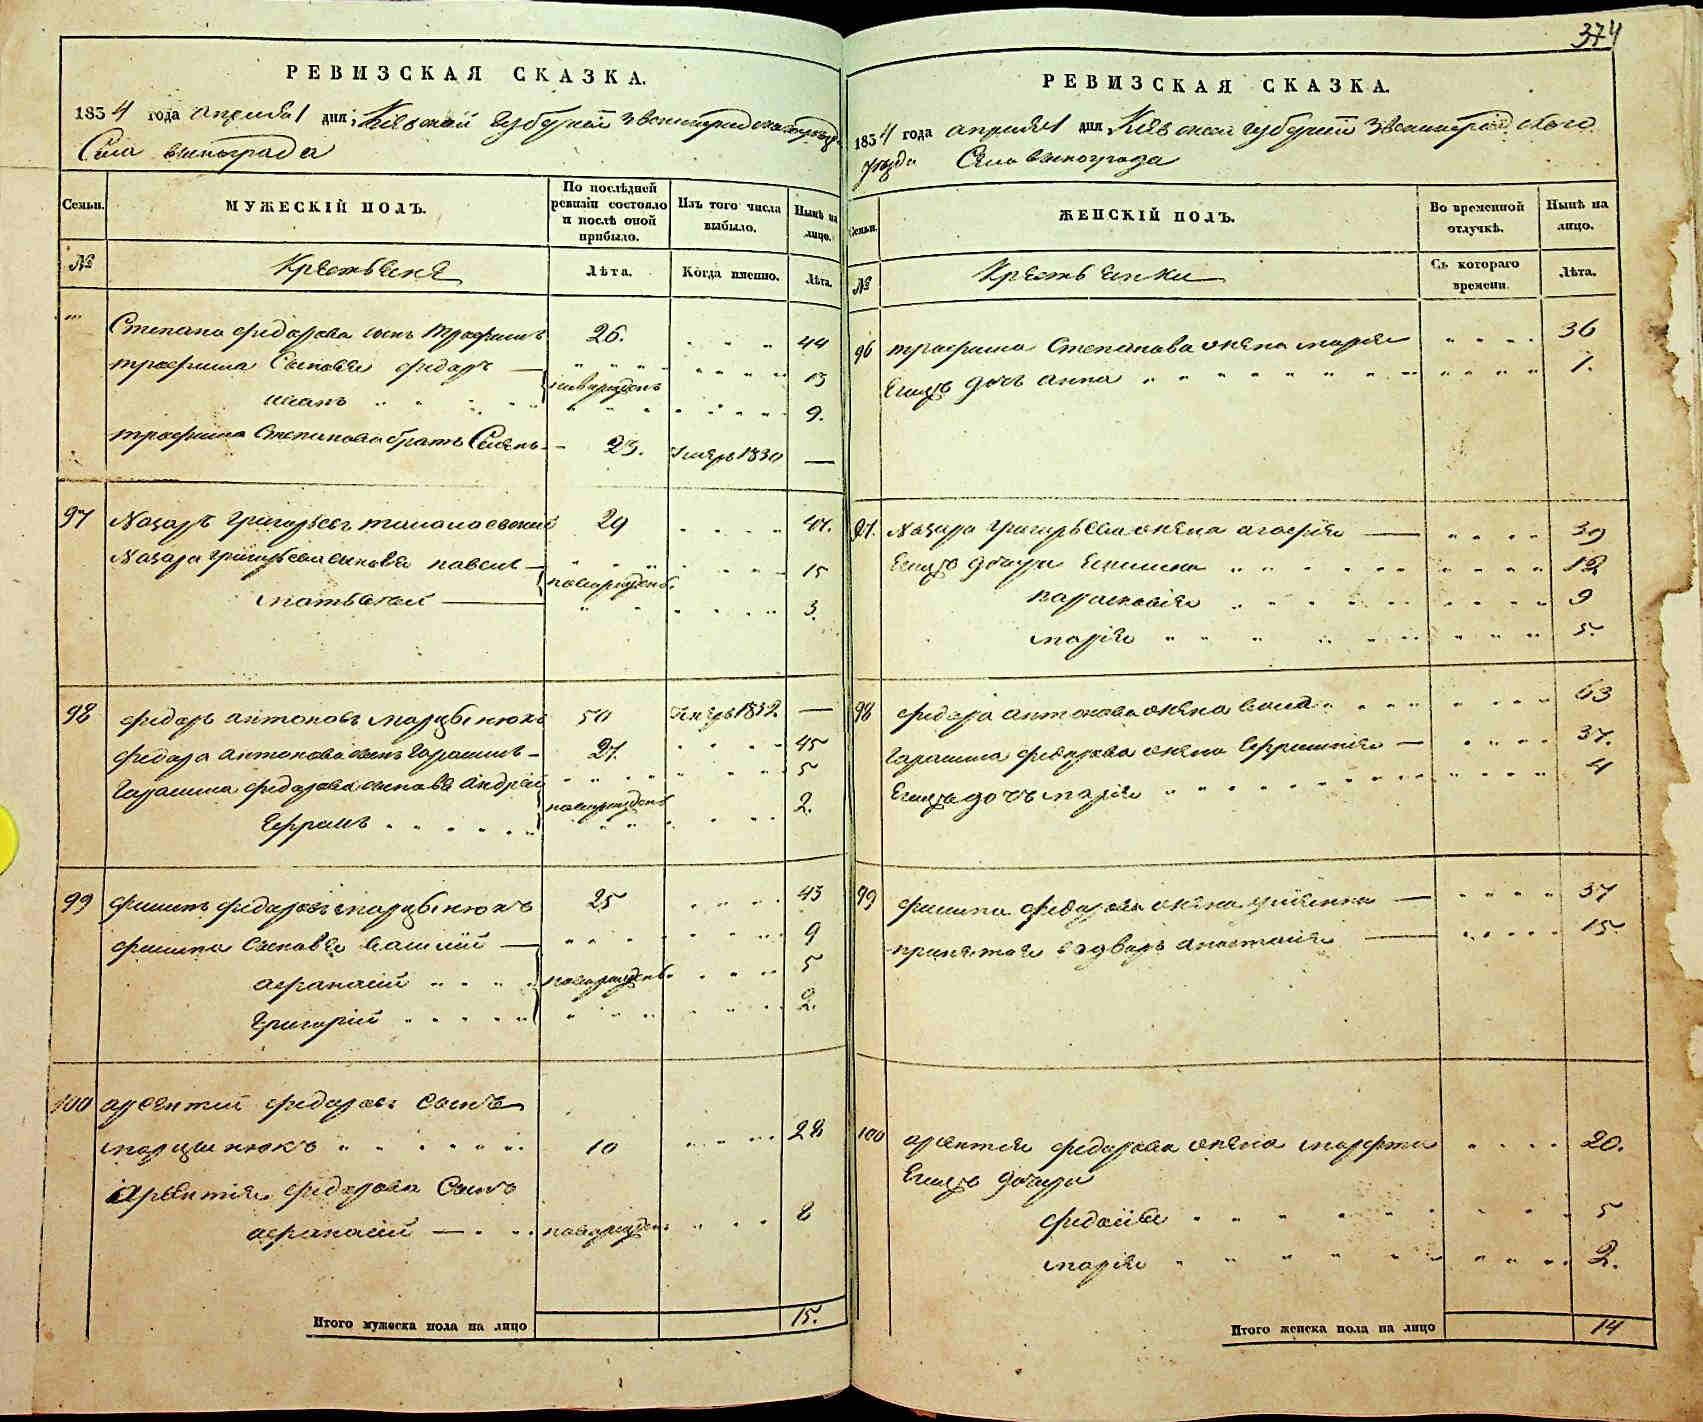 374
РЕВИЗСКАЯ СКАЗКА.
1854 года апреля 1 дня, Киевской губернии Звенигородского уезда
Села винограда
Семьи. МУЖЕСКІЙ ПОЛЪ. По послѣдней ревизіи состояло и послѣ оной прибыло. Изъ того числа выбыло. Нынѣ на лицо.
№ Крестьяне Лѣта. Когда именно. Лѣта.
Степана федорова сынъ трофимъ 26. 44
трофима Сыновья федоръ 13
иванъ новорожденъ 9.
трофима Степанова братъ Семенъ 23. 1830 —
97 Назаръ григорьевъ 29 47.
Назара григорьева сыновья павелъ 15
матвей новорожденъ. 3.
98 федоръ антоновъ марцынюкъ 50 —
федора антонова сынъ Гарасимъ 27. 45
Гарасима федорова сыновья андрей 5
Ефремъ новорожденъ 2.
99 филипъ федоровъ марцынюкъ 25 43
филипа сыновья василий 9
афанасий новорожденъ. 5
григорий 2.
100 арсентий федоровъ сынъ
марцынюкъ 10 28
Арсентия федорова Сынъ
афанасий новорожденъ 8
Итого мужеска пола на лицо 15.
РЕВИЗСКАЯ СКАЗКА.
1854 года апреля 1 дня Киевской губернии Звенигородского
уезда Села винограда
Семьи. ЖЕНСКІЙ ПОЛЪ. Во временной отлучкѣ. Нынѣ на лицо.
№ Крестьянки Съ котораго времени. Лѣта.
96 трофима Степанова жена мария 36
Егожъ дочь анна 1.
97. Назара григорьева жена агафия 39
Егожъ дочери 12
параскевия 9
мария 5.
98 федора антонова жена 63
Гарасима федорова жена Ефросиния 37.
Егожъ дочь мария 4
99 филипа федорова жена 37
принятая во дворъ анастасия 15.
100 арсентия федорова жена марфа 20.
Егожъ дочери
5
мария 2.
Итого женска пола на лицо 14